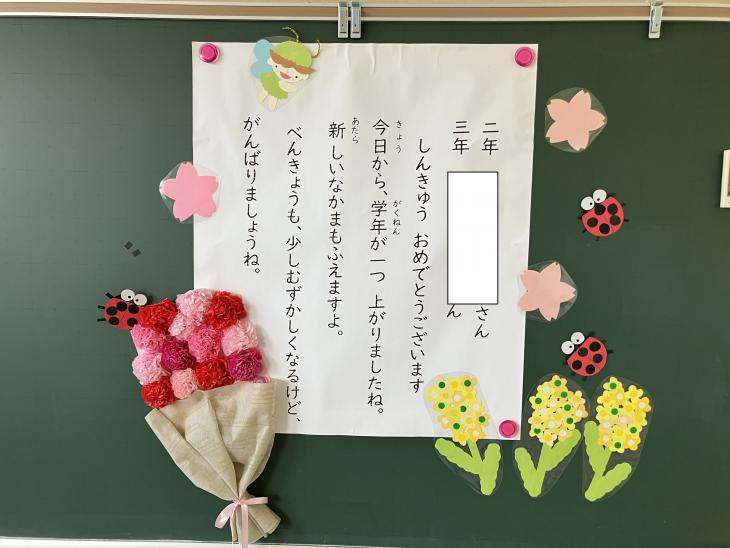 二年 さん
三年 ん
しんきゅう おめでとうございます
今日から、学年が一つ 上がりましたね。
きょう がくねん
新しいなかまもふえますよ。
あたら
べんきょうも、少しむずかしくなるけど、
がんばりましょうね。